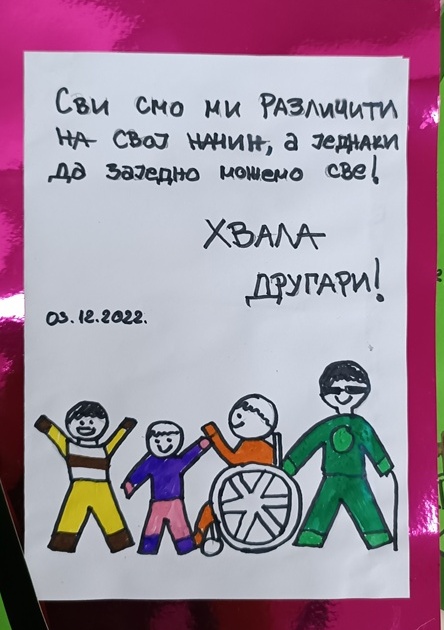 Сви смо ми РАЗЛИЧИТИ
НА СВОЈ НАЧИН, а ЈЕДНАКИ
ДА ЗАЈЕДНО можемо све!
ХВАЛА
ДРУГАРИ!
03.12.2022.